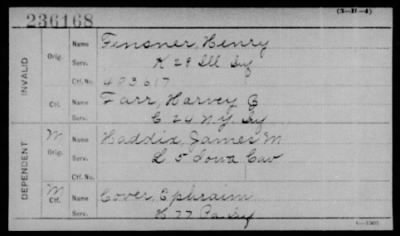 (3-B-4)
236168
INVALID
Orig.
Name Fensner, Henry
Serv. K 28 Ill Inf
Ctf. No. 493617
Ctf.
Name Farr, Harvey
Serv. C 24 N.Y. Inf
DEPENDENT
M
Orig.
Name Haddix, James M
Serv. L 5 Iowa Cav
Ctf. No.
M
Ctf.
Name Cover, Ephraim
Serv. 77 Pa Inf